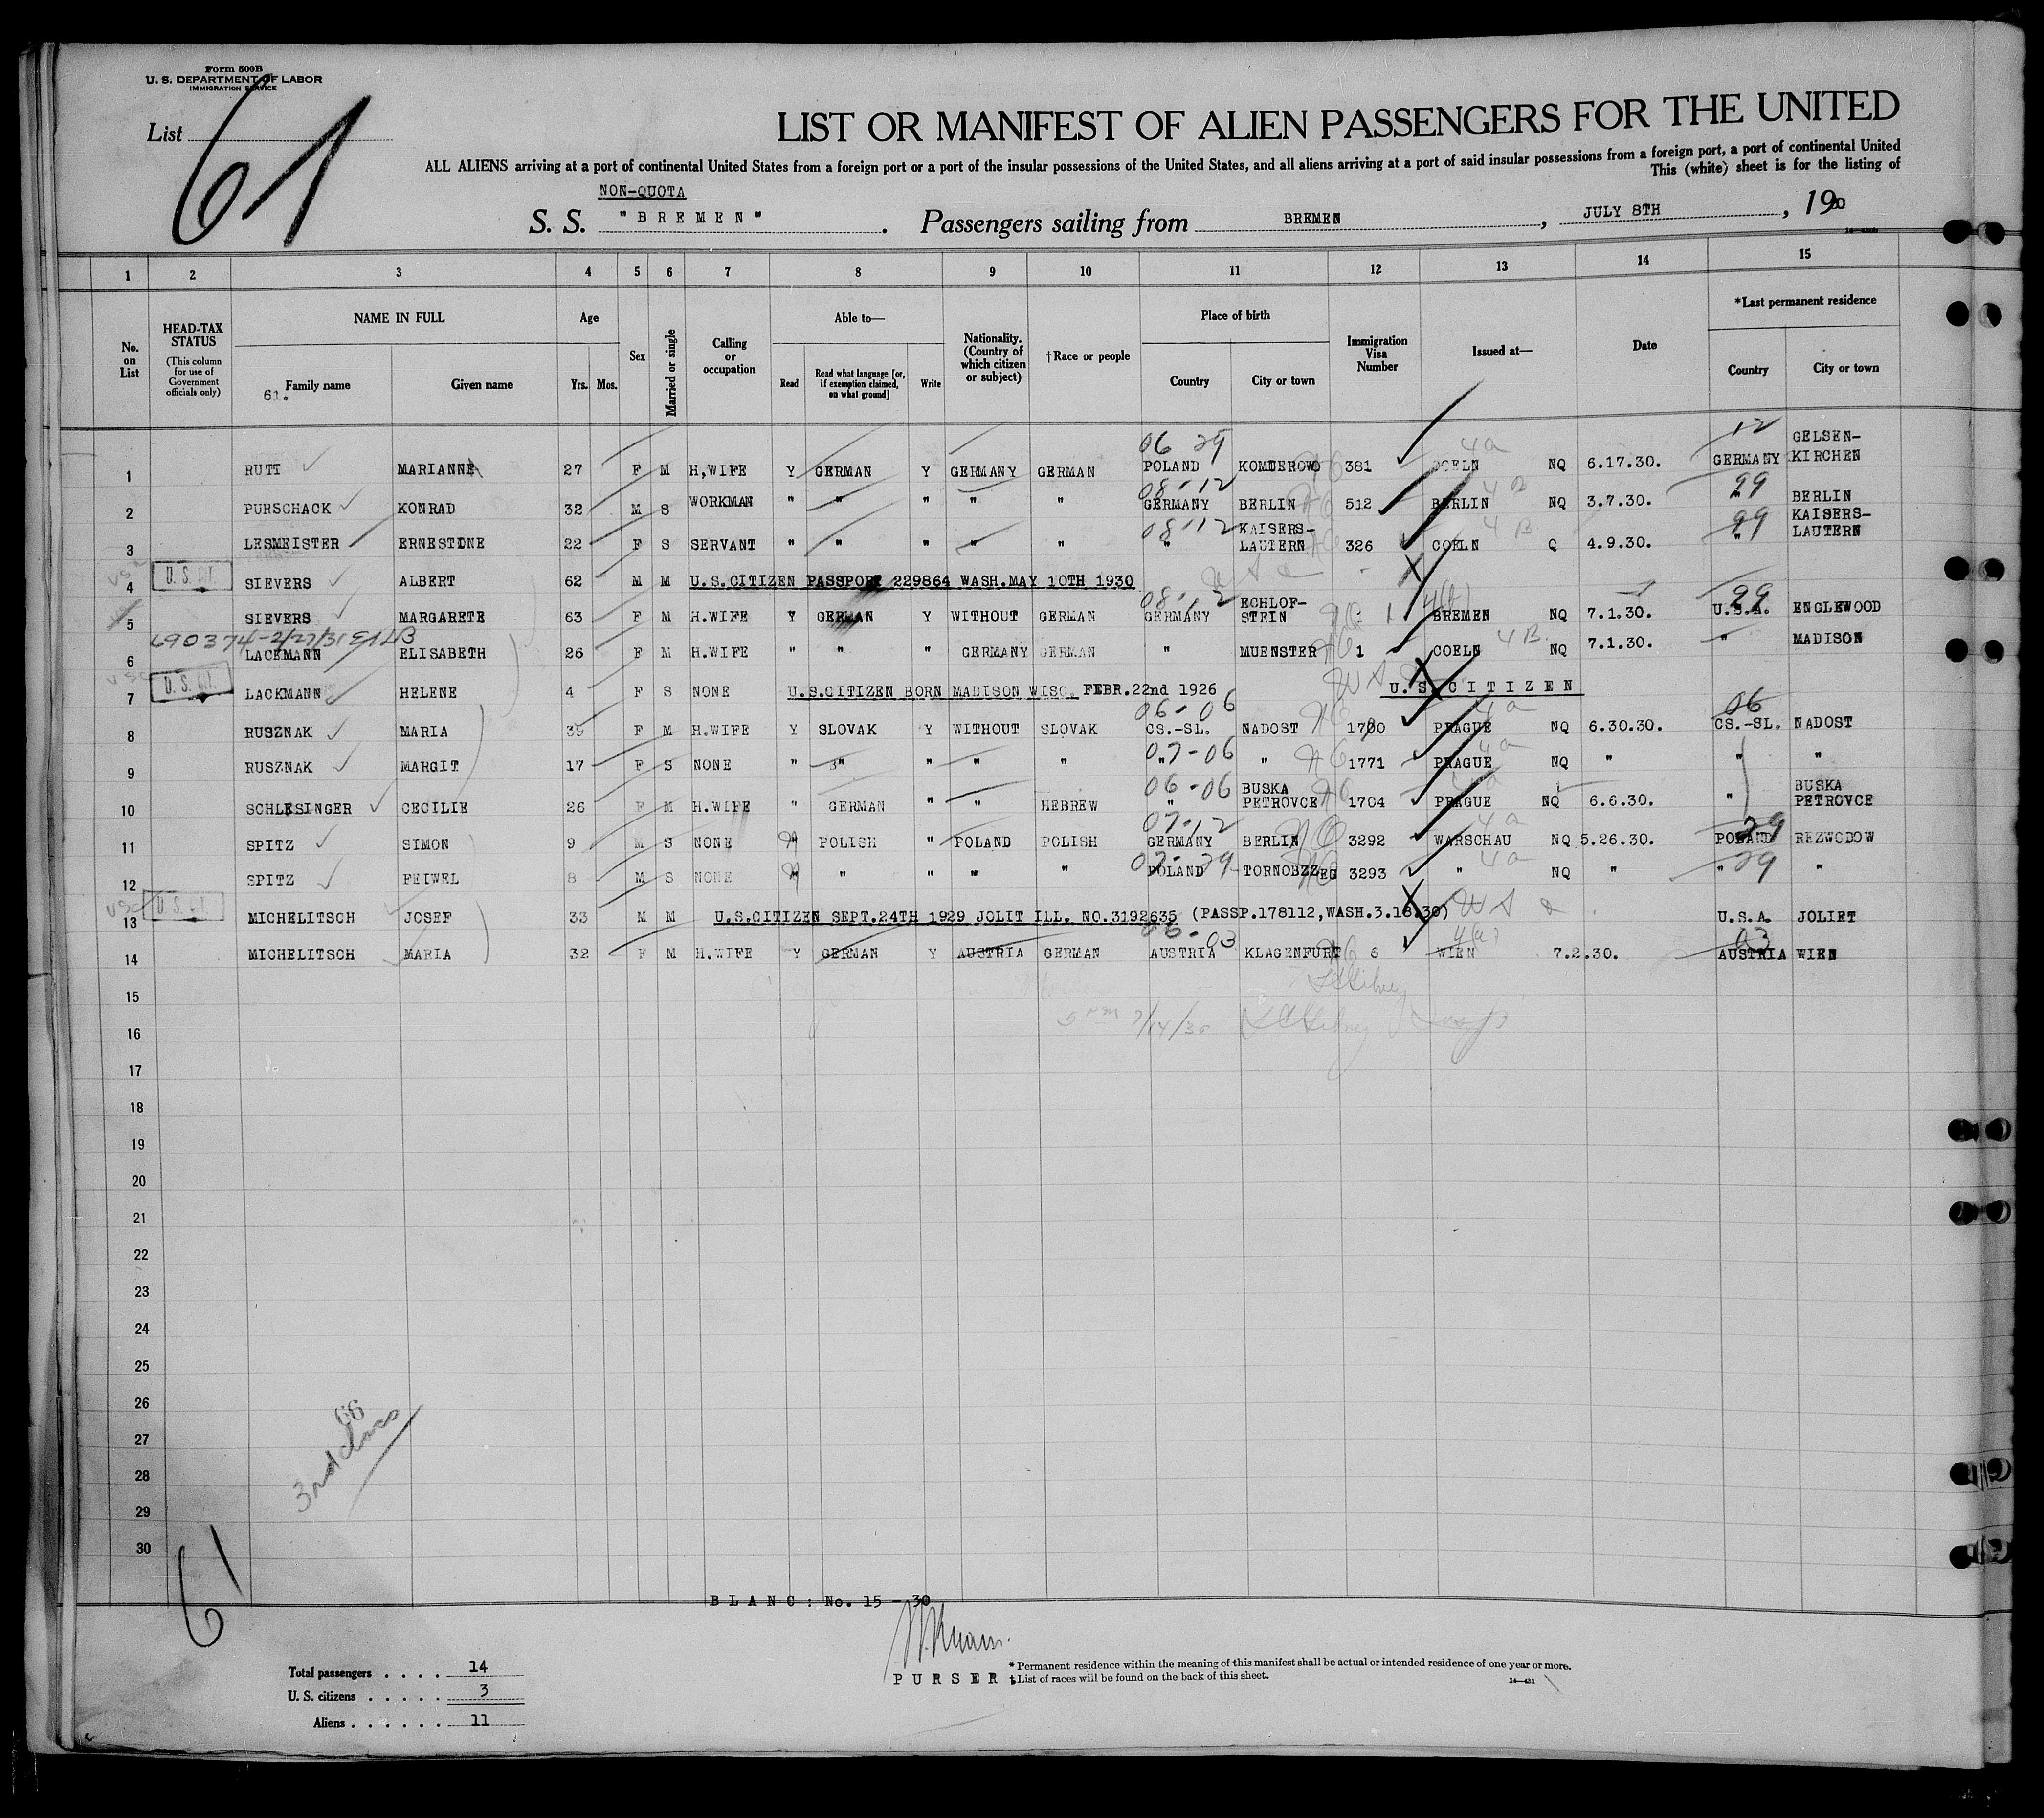 Form 500B
U. S. DEPARTMENT OF LABOR
IMMIGRATION SERVICE
List 61
LIST OR MANIFEST OF ALIEN PASSENGERS FOR THE UNITED
ALL ALIENS arriving at a port of continental United States from a foreign port or a port of the insular possessions of the United States, and all aliens arriving at a port of said insular possessions from a foreign port, a port of continental United
This (white) sheet is for the listing of
NON-QUOTA
S. S. " B R E M E N " . Passengers sailing from BREMEN , JULY 8TH , 1930
1 2 3 4 5 6 7 8 9 10 11 12 13 14 15
No. on List
HEAD-TAX STATUS (This column for use of Government officials only)
NAME IN FULL
61. Family name Given name
Age Yrs. Mos.
Sex
Married or single
Calling or occupation
Able to—
Read Read what language [or, if exemption claimed, on what ground] Write
Nationality. (Country of which citizen or subject)
†Race or people
Place of birth
Country City or town
Immigration Visa Number
Issued at—
Date
*Last permanent residence
Country City or town
06 29 4a 12
1 RUTT MARIANNE 27 F M H,WIFE Y GERMAN Y GERMANY GERMAN POLAND KOMDEROWO 381 COELN NQ 6.17.30. GERMANY GELSEN-KIRCHEN
08-12 99
2 PURSCHACK KONRAD 32 M S WORKMAN " " " " " GERMANY BERLIN 512 BERLIN NQ 3.7.30. BERLIN
08-12 4B 99
3 LESMEISTER ERNESTINE 22 F S SERVANT " " " " " " KAISERS-LAUTERN 326 COELN Q 4.9.30. " KAISERS-LAUTERN
4 U. S. CIT. SIEVERS ALBERT 62 M M U.S.CITIZEN PASSPORT 229864 WASH.MAY 10TH 1930
08-12 99
5 SIEVERS MARGARETE 63 F M H.WIFE Y GERMAN Y WITHOUT GERMAN GERMANY ECHLOF-STEIN 1 BREMEN NQ 7.1.30. U.S.A. ENGLEWOOD
690374-2/27/31
6 LACKMANN ELISABETH 26 F M H.WIFE " " " GERMANY GERMAN " MUENSTER 1 COELN 4B NQ 7.1.30. " MADISON
7 U. S. CIT. LACKMANN HELENE 4 F S NONE U.S.CITIZEN BORN MADISON WISC. FEBR.22nd 1926 U. S. C I T I Z E N
06-06 4a 06
8 RUSZNAK MARIA 39 F M H.WIFE Y SLOVAK Y WITHOUT SLOVAK CS.-SL. NADOST 1700 PRAGUE NQ 6.30.30. CS.-SL. NADOST
07-06 4a
9 RUSZNAK MARGIT 17 F S NONE " " " " " " " 1771 PRAGUE NQ " " "
06-06
10 SCHLESINGER CECILIE 26 F M H.WIFE " GERMAN " " HEBREW " BUSKA PETROVCE 1704 PRAGUE NQ 6.6.30. " BUSKA PETROVCE
07-12 4a 29
11 SPITZ SIMON 9 M S NONE " POLISH " POLAND POLISH GERMANY BERLIN 3292 WARSCHAU NQ 5.26.30. POLAND REZWODOW
07-29 4a 29
12 SPITZ FEIWEL 8 M S NONE " " " " " POLAND TORNOBZZEG 3293 " NQ " " "
13 U. S. CIT. MICHELITSCH JOSEF 33 M M U.S.CITIZEN SEPT.24TH 1929 JOLIT ILL. NO.3192635 (PASSP.178112,WASH.3.18.30) U.S.A. JOLIET
06-03 4(a) 03
14 MICHELITSCH MARIA 32 F M H.WIFE Y GERMAN Y AUSTRIA GERMAN AUSTRIA KLAGENFURT 6 WIEN 7.2.30. AUSTRIA WIEN
15
16 7/14/30
17
18
19
20
21
22
23
24
25
26
27
28
29
30
66
3rd class
61
B L A N C : No. 15 - 30
P U R S E R
Total passengers . . . . 14
U. S. citizens . . . . . 3
Aliens . . . . . . 11
* Permanent residence within the meaning of this manifest shall be actual or intended residence of one year or more.
† List of races will be found on the back of this sheet.
14—431